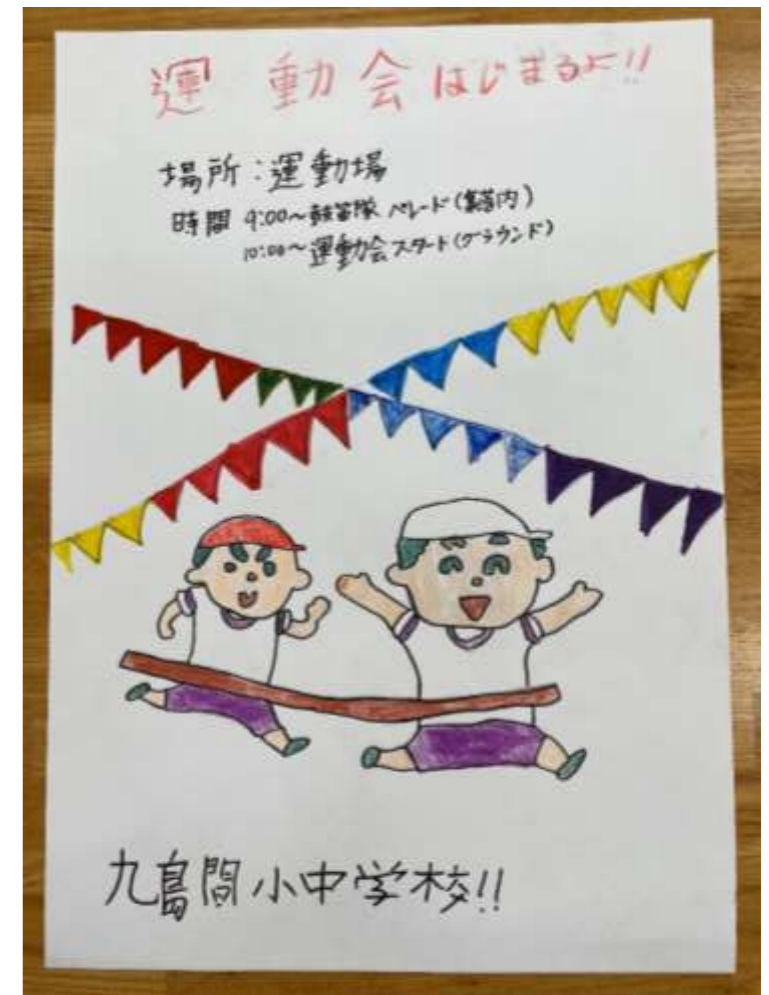 運動会はじまるよ!!
場所:運動場
時間 9:00～鼓笛隊 パレード(集落内)
10:00～運動会スタート(グラウンド)
鳩間小中学校!!